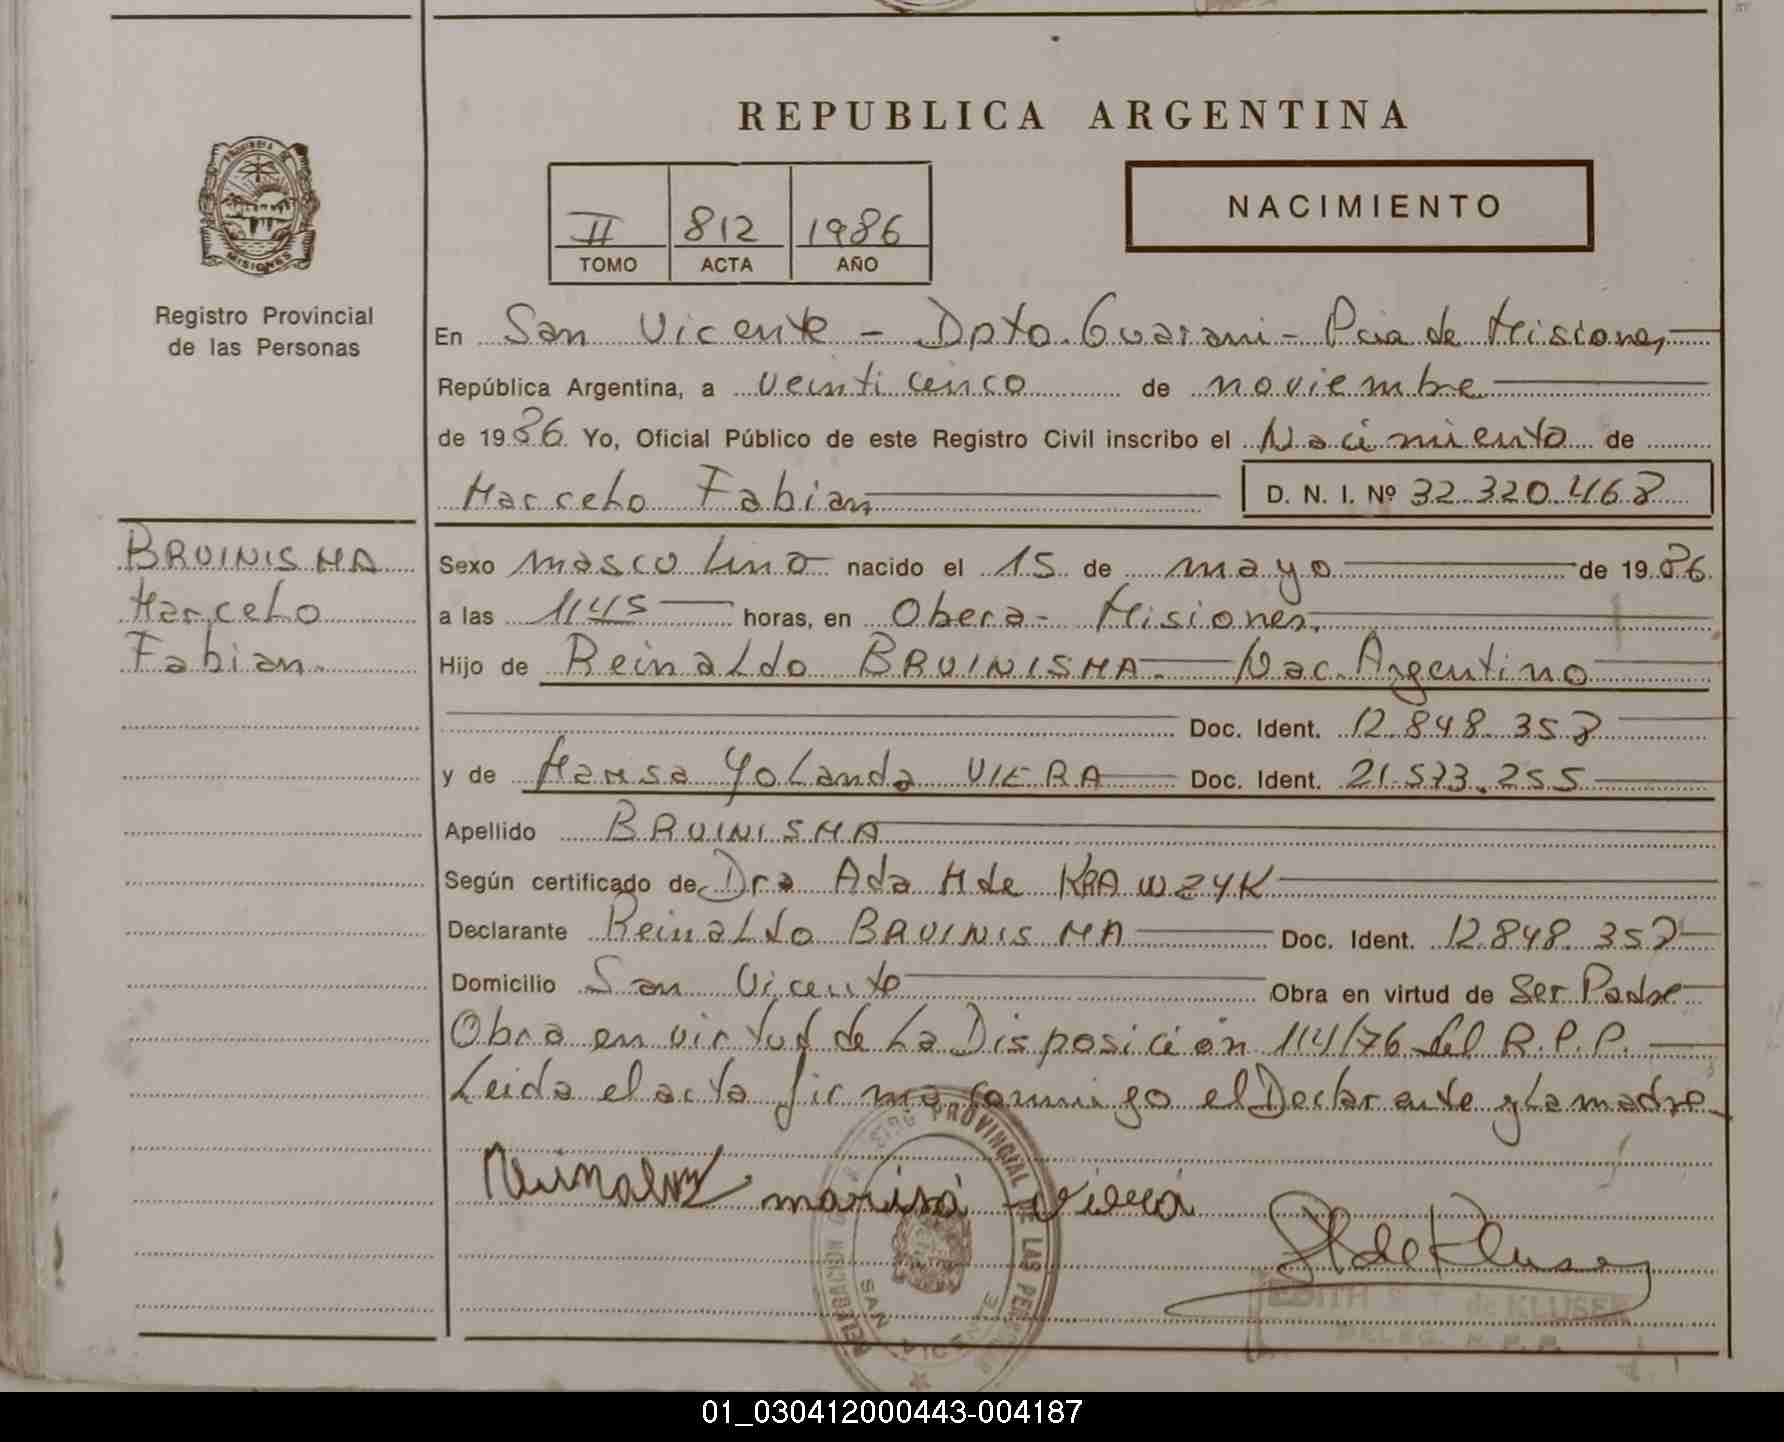 REPUBLICA ARGENTINA
NACIMIENTO
II 812 1986
TOMO ACTA AÑO
MISIONES
Registro Provincial
de las Personas
En San Vicente - Dpto. Guarani - Pcia de Misiones
República Argentina, a veinticinco de noviembre
de 1986 Yo, Oficial Público de este Registro Civil inscribo el Nacimiento de
Marcelo Fabian D. N. I. Nº 32.320.468
BRUINISMA
Marcelo
Fabian.
Sexo masculino nacido el 15 de mayo de 1986
a las 1145 horas, en Obera - Misiones.
Hijo de Reinaldo BRUINISMA. Nac. Argentino
Doc. Ident. 12.848.358
y de Marisa Yolanda VIERA Doc. Ident. 21.573.255
Apellido BRUINISMA
Según certificado de Dra Ada M de KRAWZYK
Declarante Reinaldo BRUINISMA Doc. Ident. 12.848.358
Domicilio San Vicente Obra en virtud de Ser Padre
Obra en virtud de la Disposición 114/76 del R.P.P.
Leida el acta firma conmigo el Declarante y la madre
marisa viera
PROVINCIAL DE LAS
DELEGACION SAN VICENTE
de KLUSER
DELEG. R. P. P.
01_030412000443-004187